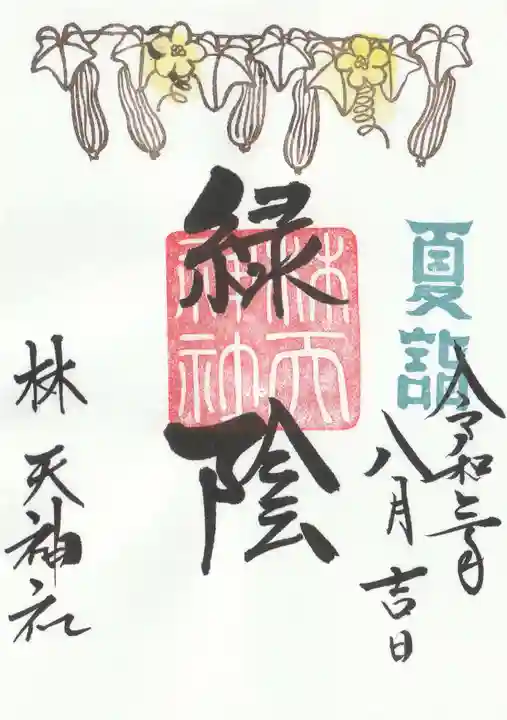 夏詣
令和三年
八月吉日
緑陰
林天神社
林天神社